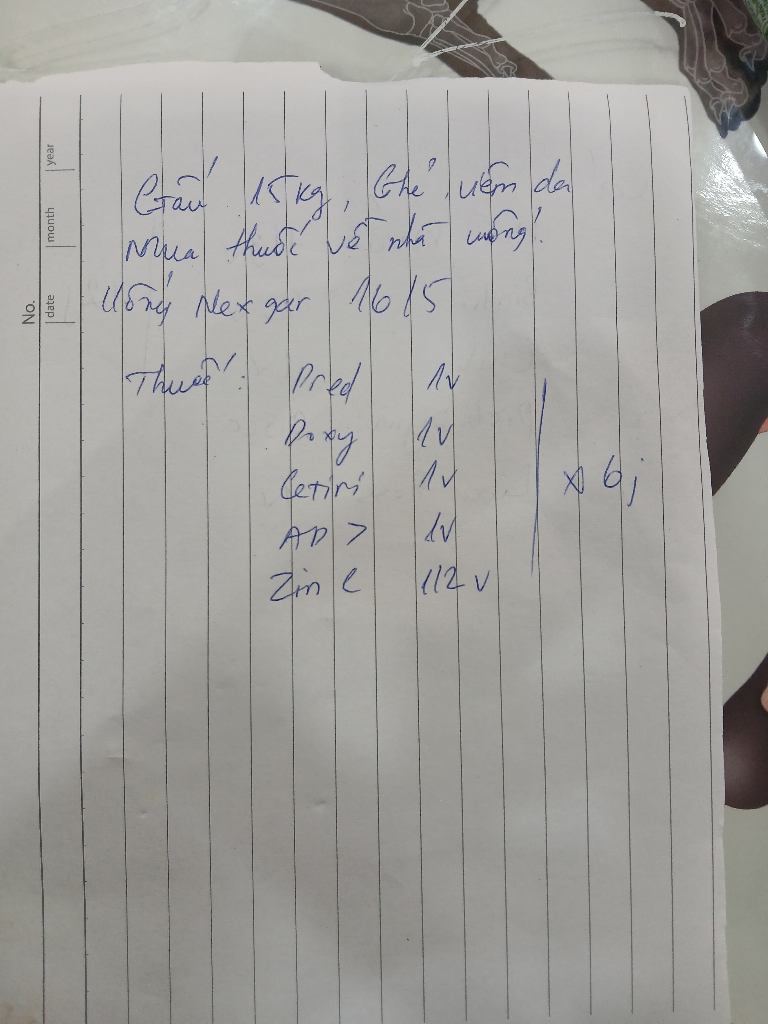 No.
date month year
Gấu 15 kg, Ghẻ, viêm da
Mua thuốc về nhà uống.
Uống Nexgar 16/5
Thuốc: Pred 1v
Doxy 1v
Cetiri 1v x 6j
AD > 1v
Zin C 1/2 v